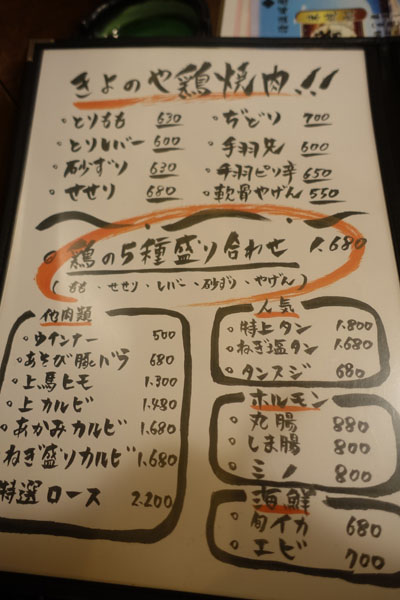 きよのや鶏焼肉!!
。とりもも 630
。とりレバー 600
。砂ずり 630
。せせり 680
。ぢどり 700
。手羽先 600
。手羽ピリ辛 650
。軟骨やげん 550
。鶏の5種盛り合わせ 1.680
(もも、せせり、レバー、砂ずり、やげん)
他肉類
。ウインナー 500
。あちび豚バラ 680
。上馬ヒモ 1.300
。上カルビ 1.480
。あかみカルビ 1.680
ねぎ盛りカルビ 1.680
特選ロース 2.200
人気
。特上タン 1.800
。ねぎ塩タン 1.680
。タンスジ 680
ホルモン
。丸腸 880
。しま腸 800
。ミノ 800
海鮮
。旬イカ 680
。エビ 700